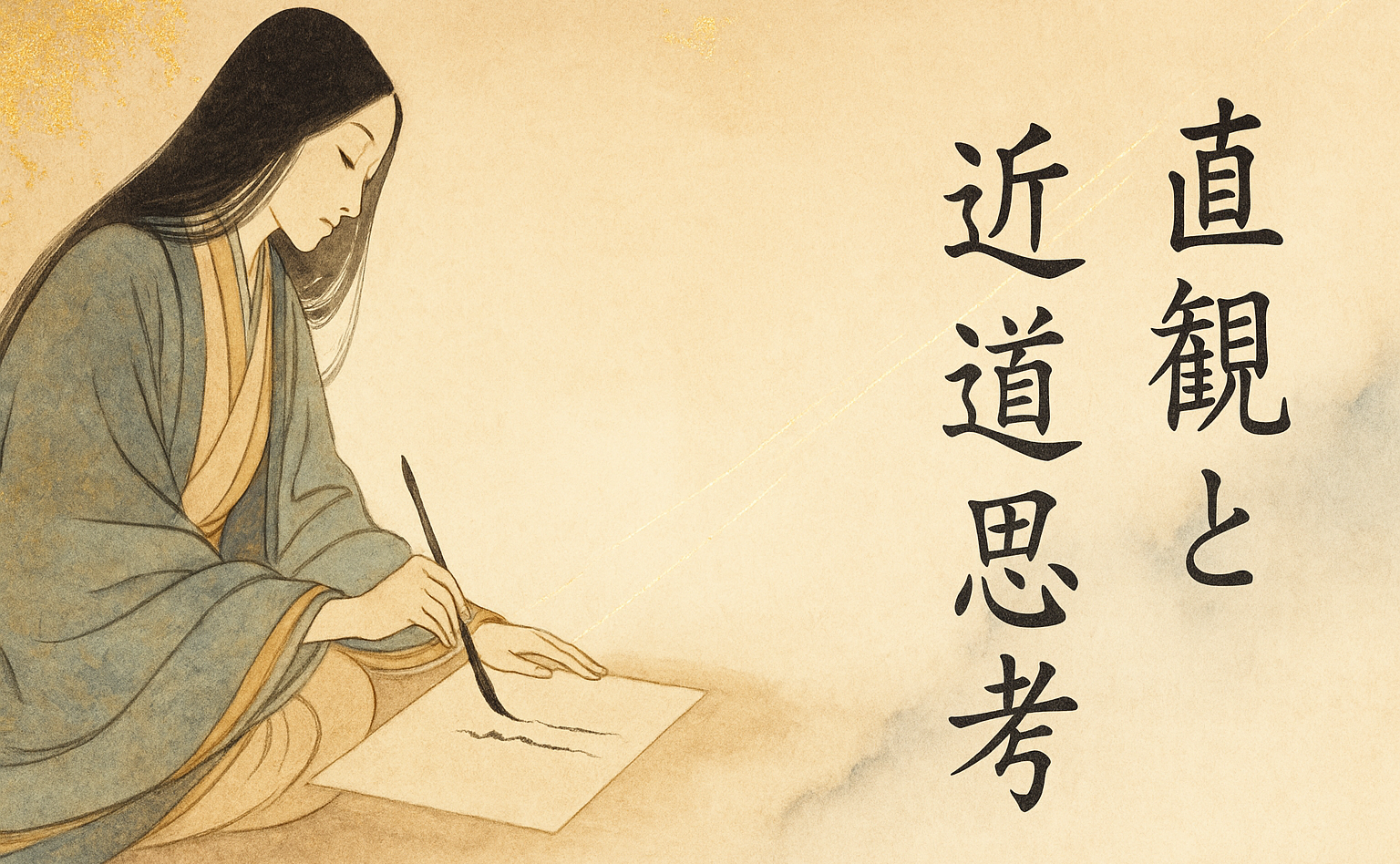 直観と
近道思考